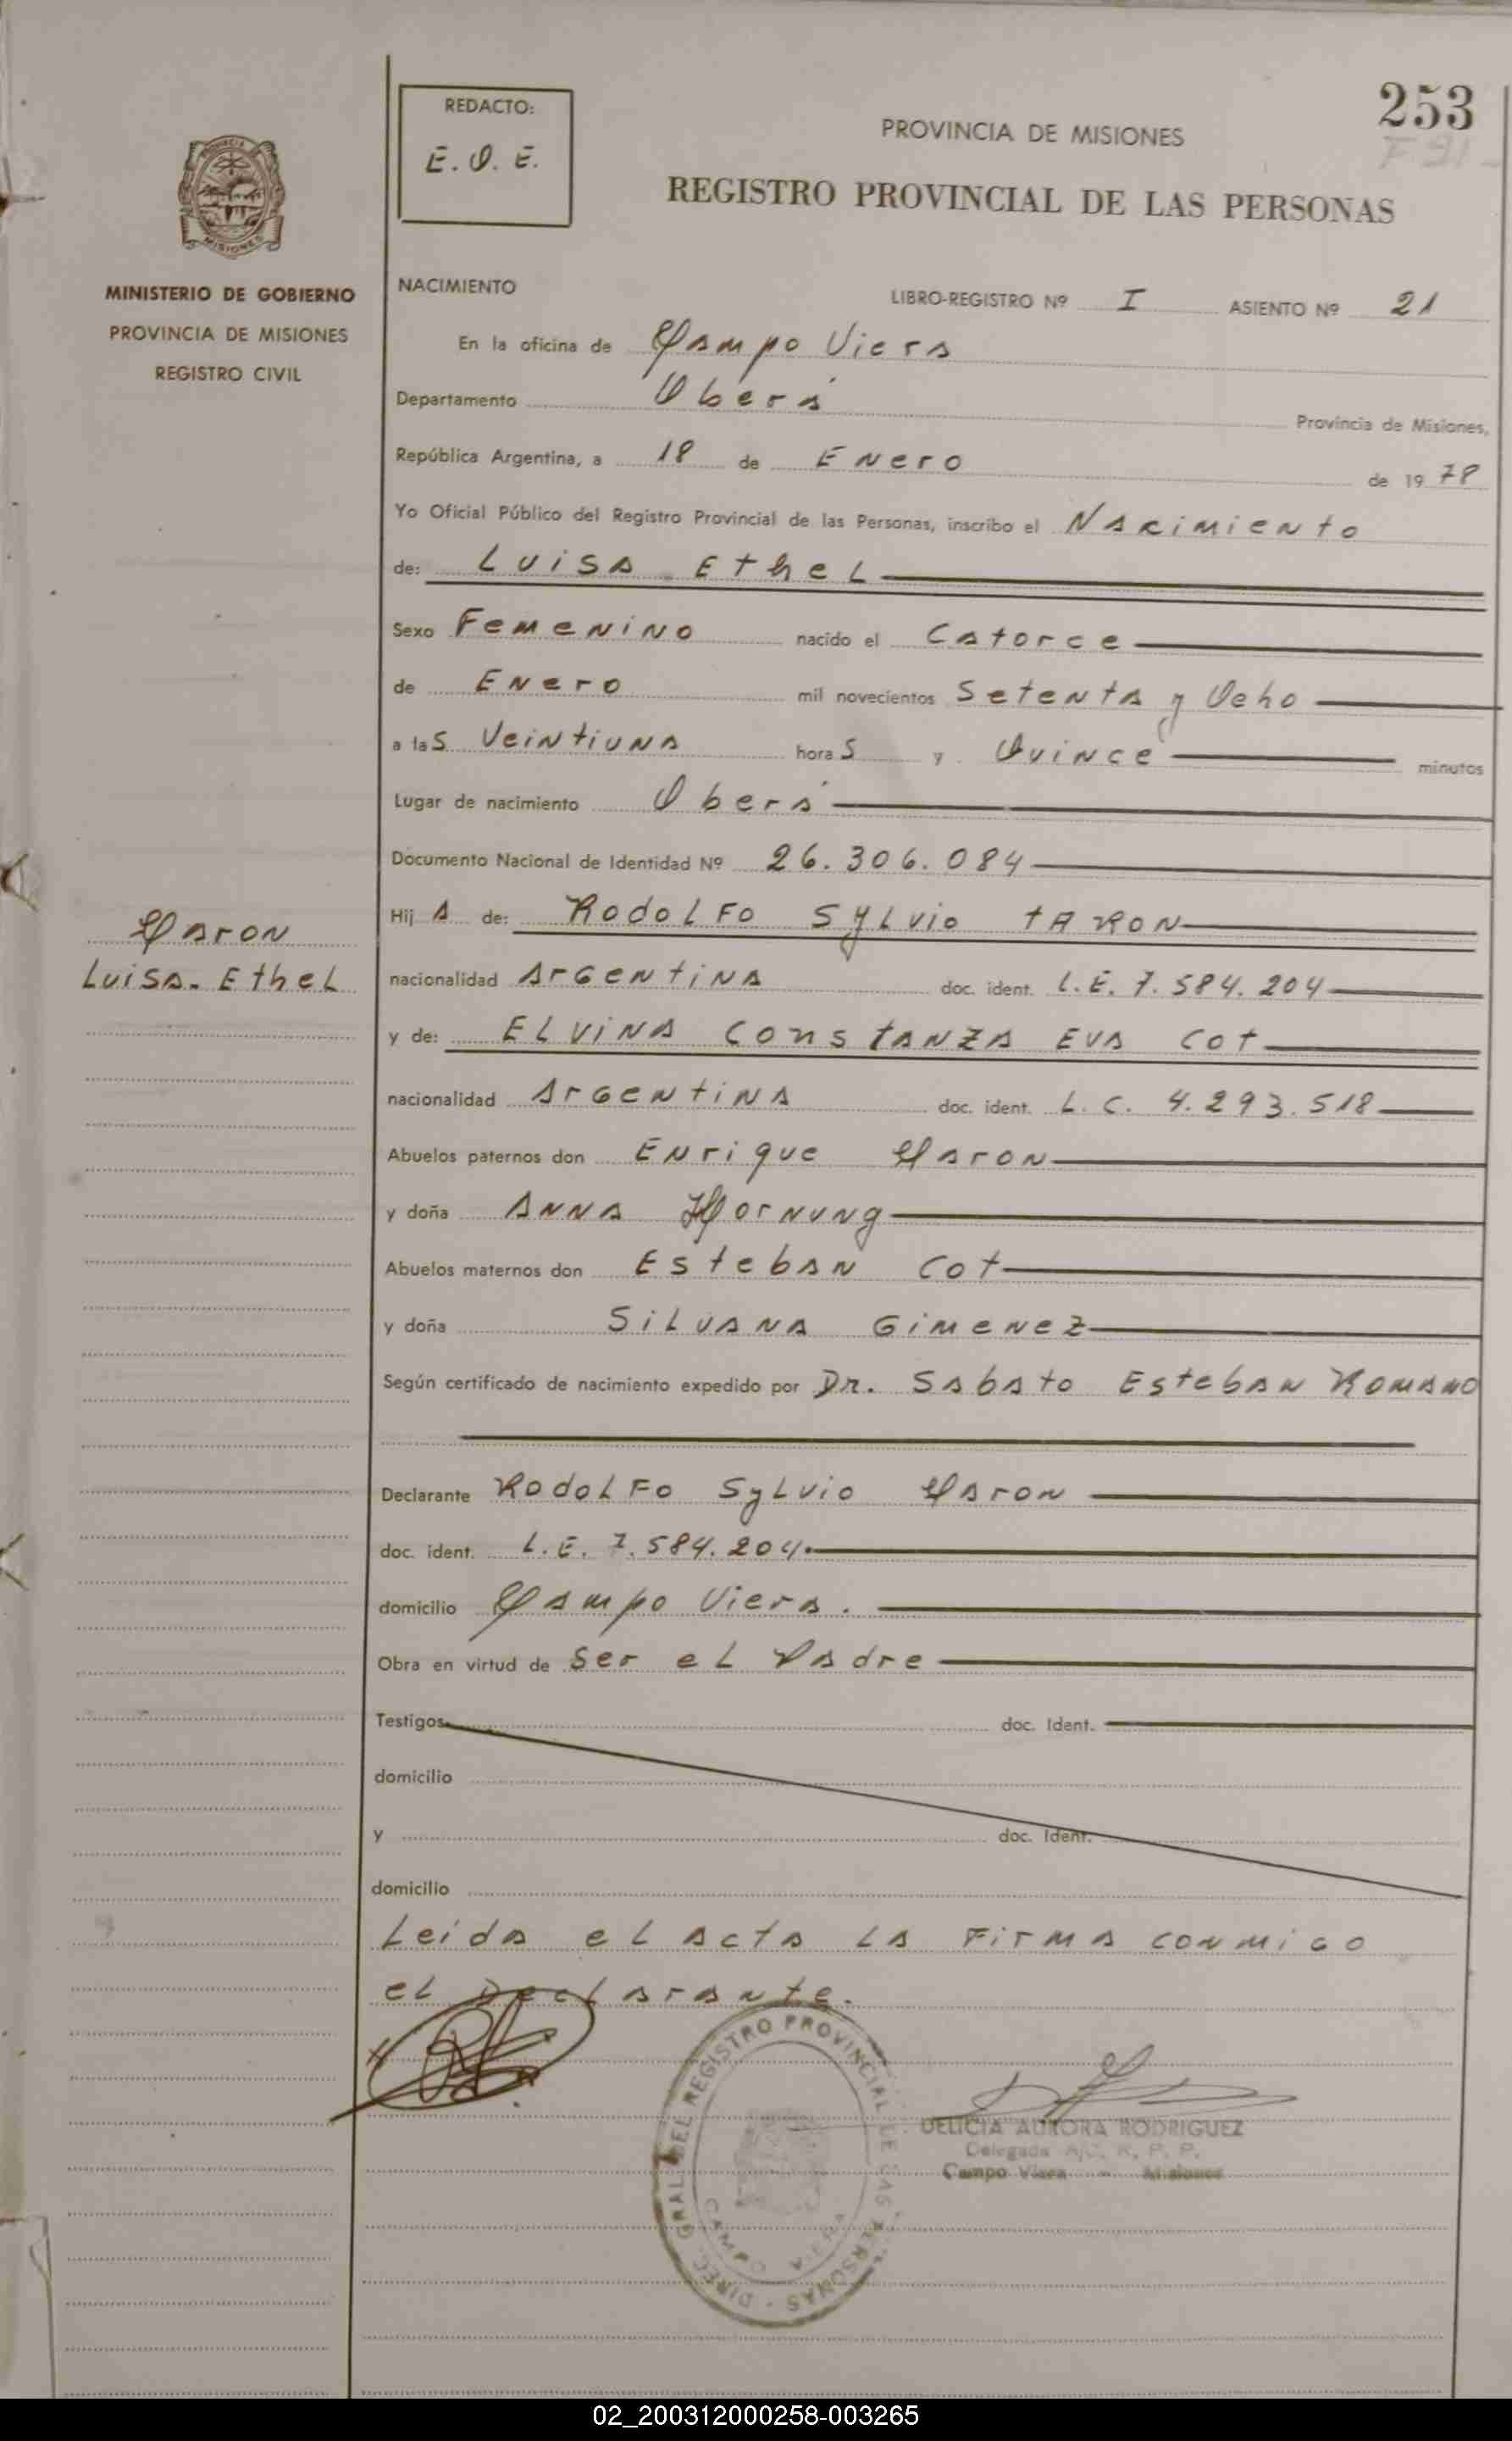 REDACTO:
E. O. E.
253
F 91
PROVINCIA DE MISIONES
REGISTRO PROVINCIAL DE LAS PERSONAS
MISIONES
MINISTERIO DE GOBIERNO
PROVINCIA DE MISIONES
REGISTRO CIVIL
NACIMIENTO
LIBRO-REGISTRO Nº I ASIENTO Nº 21
En la oficina de Campo Viera
Departamento Oberá Provincia de Misiones,
República Argentina, a 18 de Enero de 1978
Yo Oficial Público del Registro Provincial de las Personas, inscribo el Nacimiento
de: Luisa Ethel
Sexo Femenino nacido el Catorce
de Enero mil novecientos Setenta y Ocho
a las Veintiuna horas y Quince minutos
Lugar de nacimiento Oberá
Documento Nacional de Identidad Nº 26.306.084
Hija de: Rodolfo Sylvio Taron
Taron
Luisa Ethel
nacionalidad Argentina doc. ident. L.E. 7.584.204
y de: Elvina Constanza Eva Cot
nacionalidad Argentina doc. ident. L.C. 4.293.518
Abuelos paternos don Enrique Taron
y doña Anna Hornung
Abuelos maternos don Esteban Cot
y doña Silvana Gimenez
Según certificado de nacimiento expedido por Dr. Sabato Esteban Romano
Declarante Rodolfo Sylvio Taron
doc. ident. L.E. 7.584.204.
domicilio Campo Viera.
Obra en virtud de Ser el Padre
Testigos doc. Ident.
domicilio
y doc. Ident.
domicilio
Leida el acta la firma conmigo
el Declarante.
DIREC. GRAL. DEL REGISTRO PROVINCIAL DE LAS PERSONAS
CAMPO VIERA
DELICIA AURORA RODRIGUEZ
Delegada R. P. P.
Campo Viera - Misiones
02_200312000258-003265